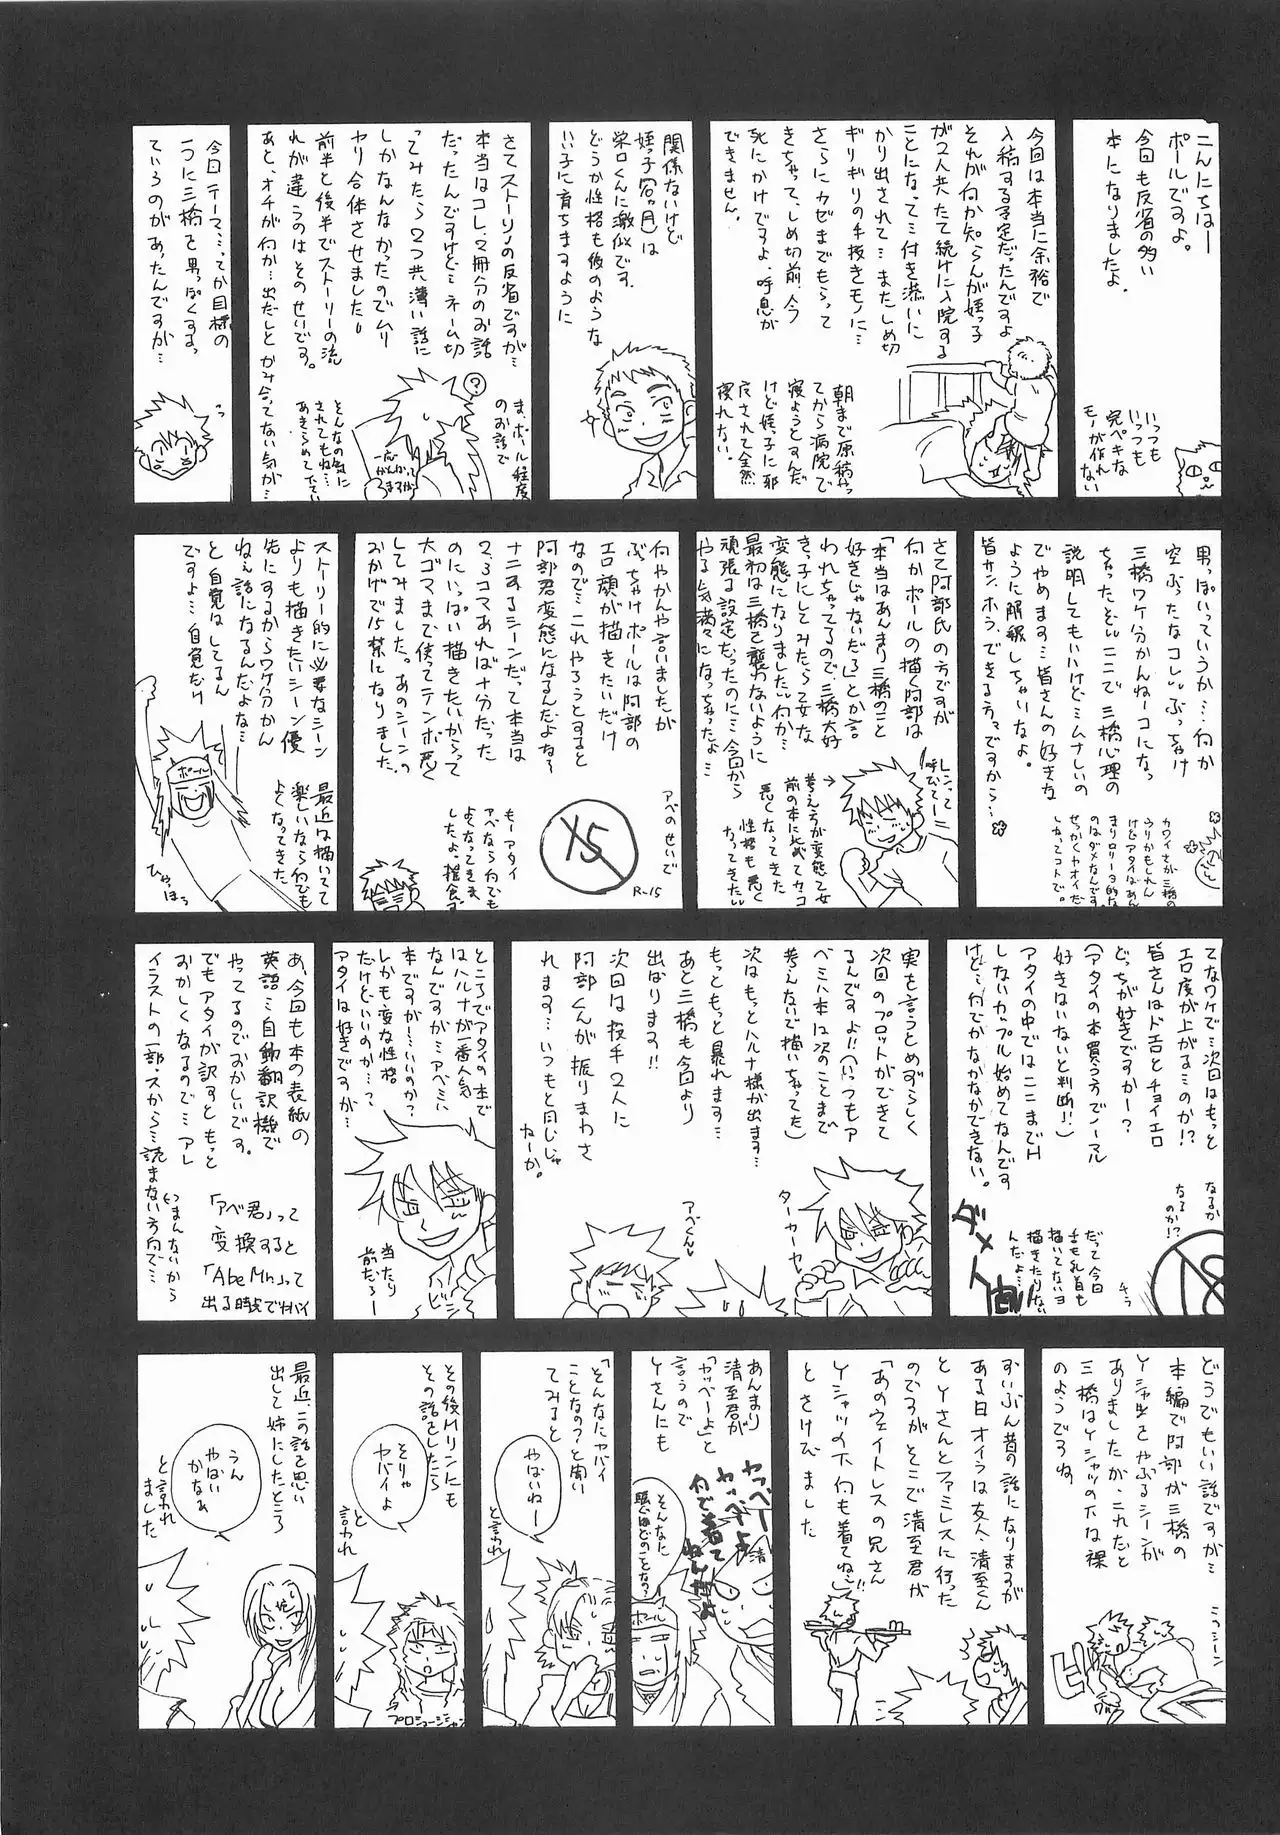 こんにちはー
ポールですよ。
今回も反省の多い
本になりましたよ。
いっつも
いっつも
完ペキな
モーが作れ
ない
今回は本当に余裕で
入稿する予定だったんですよ
それが何か知らんが姪っ子
が2人共たて続けに入院する
ことになって…付き添いに
かり出されて…またしめ切
ギリギリの手抜きモノに…
さらにカゼまでもらって
きちゃって、しめ切前、今
死にかけですよ。呼息が
できません。
朝まで原稿やっ
てから病院で
寝ようとすんだ
けど姪っ子に邪
魔されて全然
寝れない。
関係ないけど
姪っ子は
栄口くんに激似です。
どうか性格も彼のような
いい子に育ちますように
さてストーリーの反省ですが…
本当はコレ、2冊分のお話
だったんですけど…ネーム切
ってみたら2つ共薄い話に
しかなんなかったのでムリ
ヤリ合体させました!
前半と後半でストーリーの流
れが違うのはそのせいです。
あと、オチが何か…出だしとかみ合ってない気が…
ま、ポール程度
のお話で
?
一応
がんばって
ますが
そんなの気に
されてもね…
あきらめて下さい
今回テーマ…ってか目標の
一つに三橋を男っぽくする、
ているのがあったんですが…
男っぽいっていうか…何か
空ぶったなコレ!ぶっちゃけ
三橋ワケ分かんねーコになっ
ちゃったぞ!!ここで三橋心理の
説明してもいいけど…ムナしいの
でやめます…皆さんの好きな
ように解釈しちゃいなよ。
皆サン、ホラ、できる方々ですから…
カワイさが三橋の
ウリかもしれん
けどアタイはあん
まりロリータ的な
のはダメなんです
せっかくヤオイだ
しねってコトで。
さて阿部氏の方ですが
何かポールの描く阿部は
「本当はあんまり三橋のこと
好きじゃないだろ」とか言
われちゃってるので、三橋大好
きっ子にしてみたら乙女な
変態になりました!!何か…
最初は三橋を襲わないように
頑張る設定だったのに…今回から
やる気満々になっちゃったよ…
レンって
呼びてーニ
考え方が変態乙女
前の本に比べてカッコ
悪くなってきた
性格も悪く
なってきたい
何やかんや言いましたが
ぶっちゃけポールは阿部の
エロ顔が描きたいだけ
なので…これやろうとすると
阿部君変態になるんだよな〜
ナニするシーンだって本当は
2、3コマあれば十分だった
のにいっぱい描きたいからって
大ゴマまで使ってテンポ悪く
してみました。あのシーンの
おかげで15禁になりました。
アベのせいで
15
R-15
もーアタイ
アベなら何でも
よくなってきま
したよ。雑食す
ストーリー的に必要なシーン
よりも描きたいシーン優
先にするからワケ分かん
ねぇ話になるんだよな…
と自覚はしてるん
ですよ…自覚だけ
最近は描いてて
楽しいなら何でも
よくなってきた
ポール
ひゃっほう
てなワケで…次回はもっと
エロ度が上がる…のか!?
皆さんはドエロとチョイエロ
どっちが好きですかー?
(アタイの本買う方でノーマル
好きはいないと判断!!)
アタイの中ではここまでH
しないカップル始めてなんです
けど…何でかなかなかできない。
なるか
なる!?
のか!?
だって今回
チも乳首も
描いてないヨ
描きたりない
んだよ…
チラ
18
実も言うとめずらしく
次回のプロットができて
るんですよ!!(いつもア
ベミハ本は次のことまで
考えないで描いちゃってた)
次はもっとハルナ様が出ます…
もっともっと暴れます…
あと三橋も今回より
出ばります!!
次回は投手2人に
阿部くんが振りまわさ
れます…いつもと同じじゃ
ねーか。
ターカーヤ
アベくん
ところでアタイの本で
はハルナが一番人気
なんですが…アベミハ
本ですが!…いいのか?
しかも変な性格
だけどいいのか…?
アタイは好きですが…
当たり
前だろー
ビシ
あ、今回も本の表紙の
英語…自動翻訳機で
やってるのでおかしいです。
でもアタイが訳すともっと
おかしくなるので…アレ
イラストの一部。スから…読まない方向で…
つまんないから
「アベ君」って
変換すると
「Abe Mr」って
出る時点でヤバイ
どうでもいい話ですが…
本編で阿部が三橋の
Yシャツをやぶるシーンが
ありましたが、これだと
三橋はYシャツの下は裸
のようですね
ずいぶん昔の話になりますが
ある日オイラは友人・清至くん
とYさんとファミレスに行った
のですがそこで清至君が
「あのウェイトレスの兄さん
Yシャツの下何も着てねー!!」
とさけびました
あんまり
清至君が
「ヤッベーよ」と
言うので
Yさんにも
ヤッベー
ヤッベーよ
何で着て
ねーんだよ
清
そんなに
騒ぐほどのことなの?
ポール
「そんなにヤバイ
ことなの?」と聞い
てみると
やばいねー
と言われ
その後Mリンにも
その話をしたら
そりゃ
ヤバイよ
と
言われ
プロミュージシャン
最近、この話を思い
出して姉にしたところ
うん
やばい
かなぁ
と言われ
ました
姉